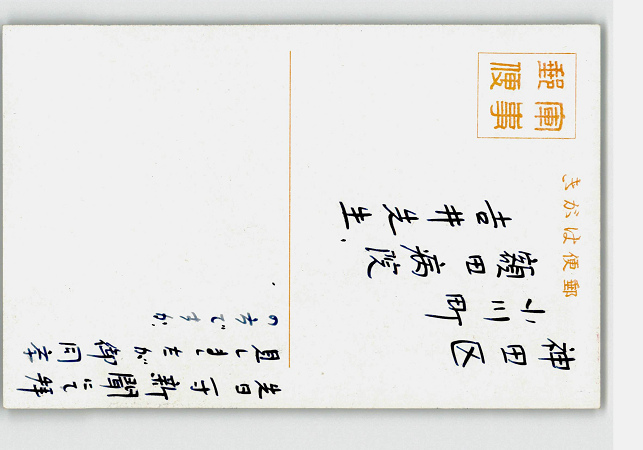 郵便はがき
軍事
郵便
神田区
小川町
額田病院
吉井先生
先日一寸新聞にて拝
見しましたが御同卒
の方ですか